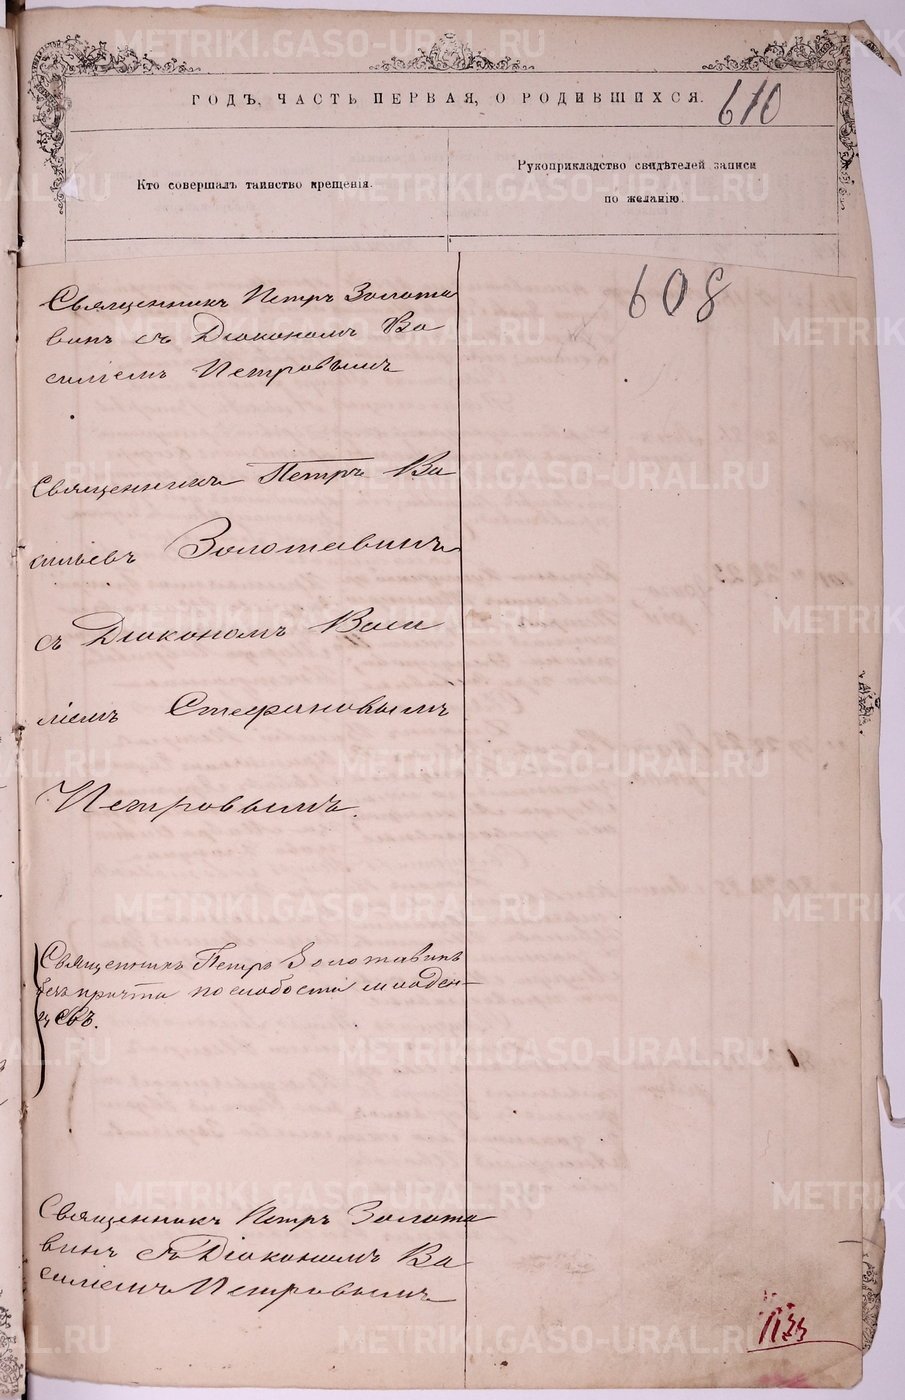 ГОДЪ, ЧАСТЬ ПЕРВАЯ, О РОДИВШИХСЯ.
610
Кто совершалъ таинство крещенія.
Рукоприкладство свидѣтелей записи
по желанію.
608
Священникъ Петръ Золота
винъ съ Діакономъ Ва
силіемъ Петровымъ
Священникъ Петръ Ва
сильевъ Золотавинъ
съ Діакономъ Васи
ліемъ Стефановымъ
Петровымъ.
Священникъ Петръ Золотавинъ
безъ причта по слабости младен-
цевъ.
Священникъ Петръ Золота
винъ съ Діакономъ Ва
силіемъ Петровымъ
METRIKI.GASO-URAL.RU